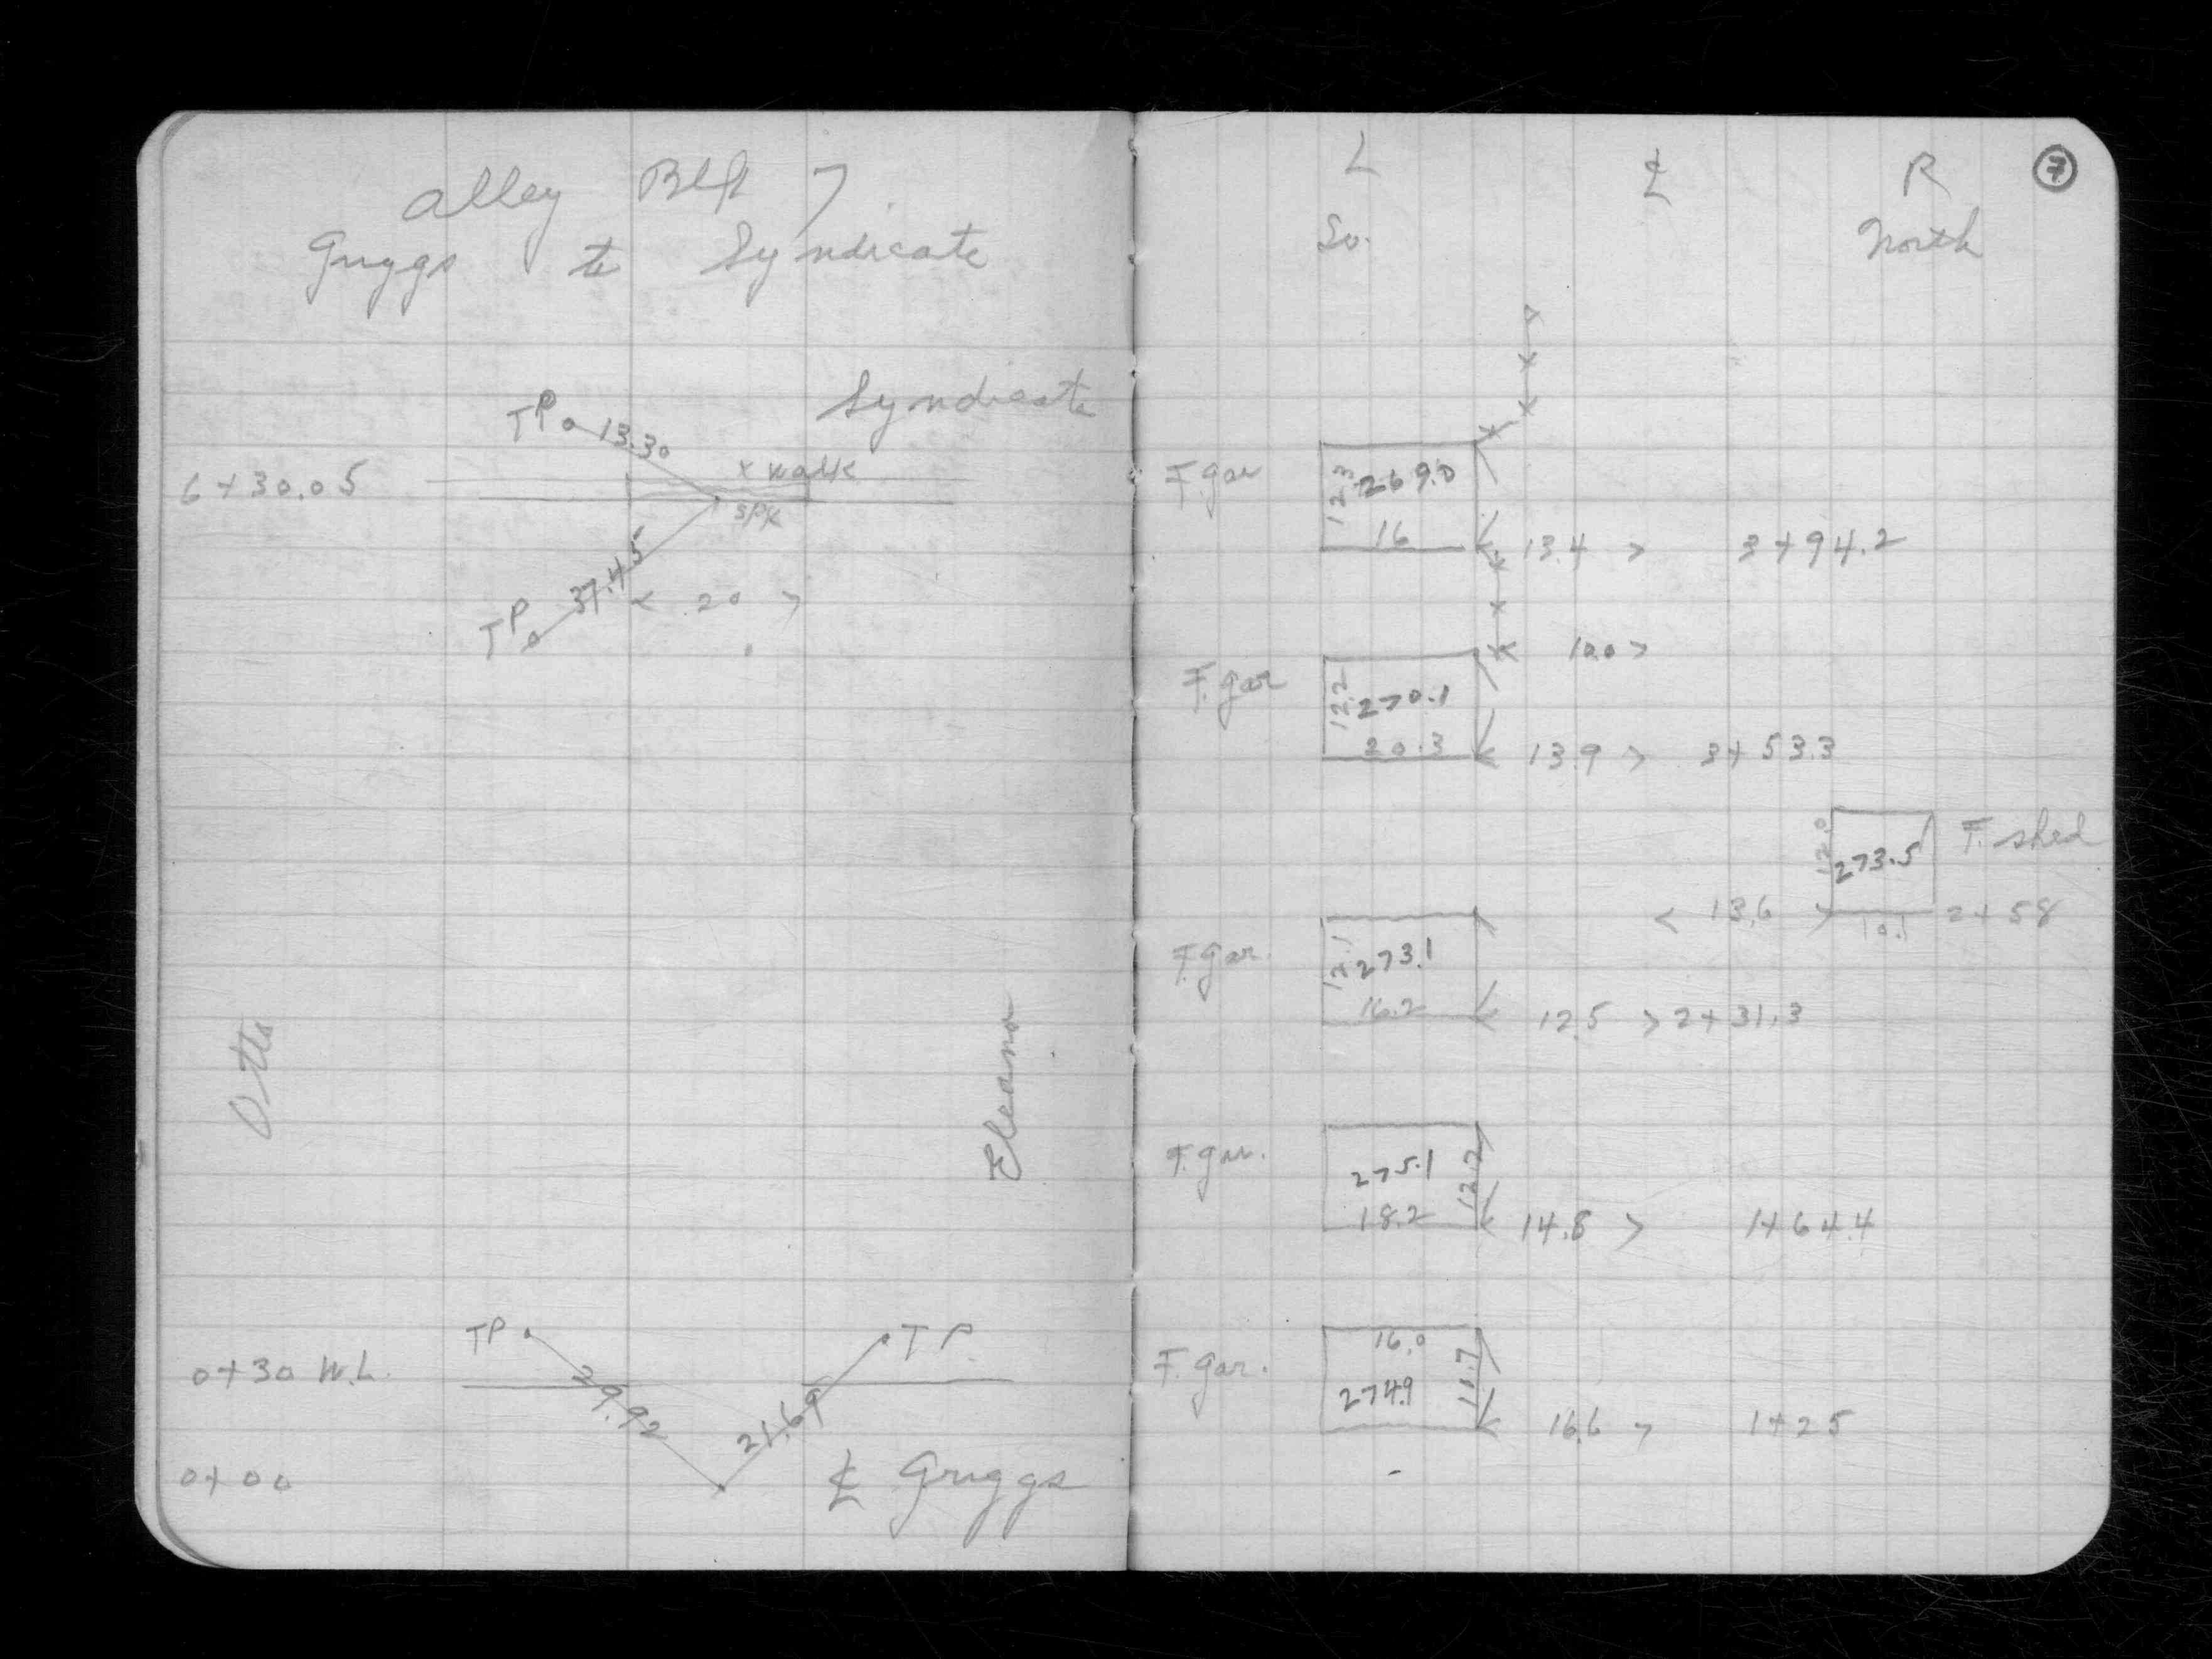 alley Blk 7
Griggs to Syndicate
Syndicate
TP 13.30
x walk
6+30.05
SPK
37.45
< 20 >
TP
Otto
Eleanor
TP
TP
0+30 W.L.
39.92
21.69
0+00
℄ Griggs
7
L ℄ R
So. North
F. gar 12.3 269.0
16 13.4 > 3+94.2
10.0 >
F. gar 12.2 270.1
20.3 13.9 > 3+53.3
12.0 273.5 F. shed
< 13.6 > 10.1 2+58
F. gar. 12.1 273.1
16.2 12.5 > 2+31.3
F. gar. 275.1 12.2
18.2 14.8 > 1+64.4
16.0
F. gar. 274.9 11.7
16.6 > 1+25